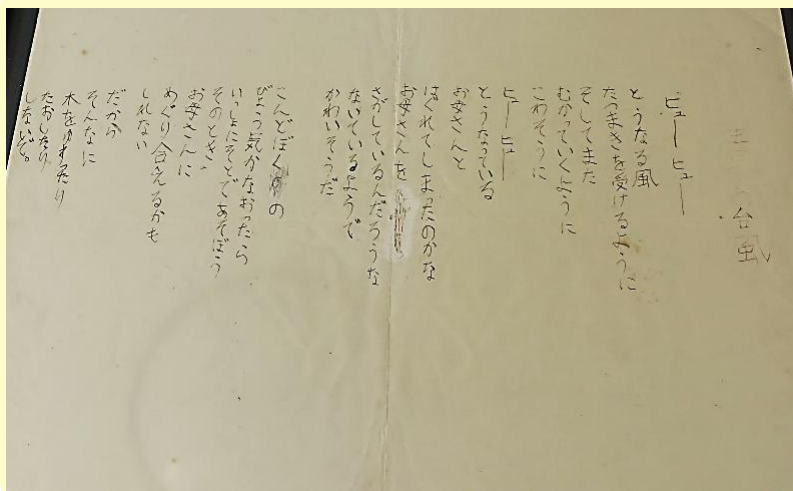 台風
ビュー ヒュー
とうなる風
たつまきを受けるように
そしてまた
むかっていくように
こわそうに
ヒュー ヒュー
とうなっている
お母さんと
はぐれてしまったのかな
お母さんを
さがしているんだろうな
ないているようで
かわいそうだ
こんどぼくの
びょう気がなおったら
いっしょにそとであそぼう
そのとき、
お母さんに
めぐり合えるかも
しれない
だから
そんなに
木をゆすったり
たおしたり
しないで。